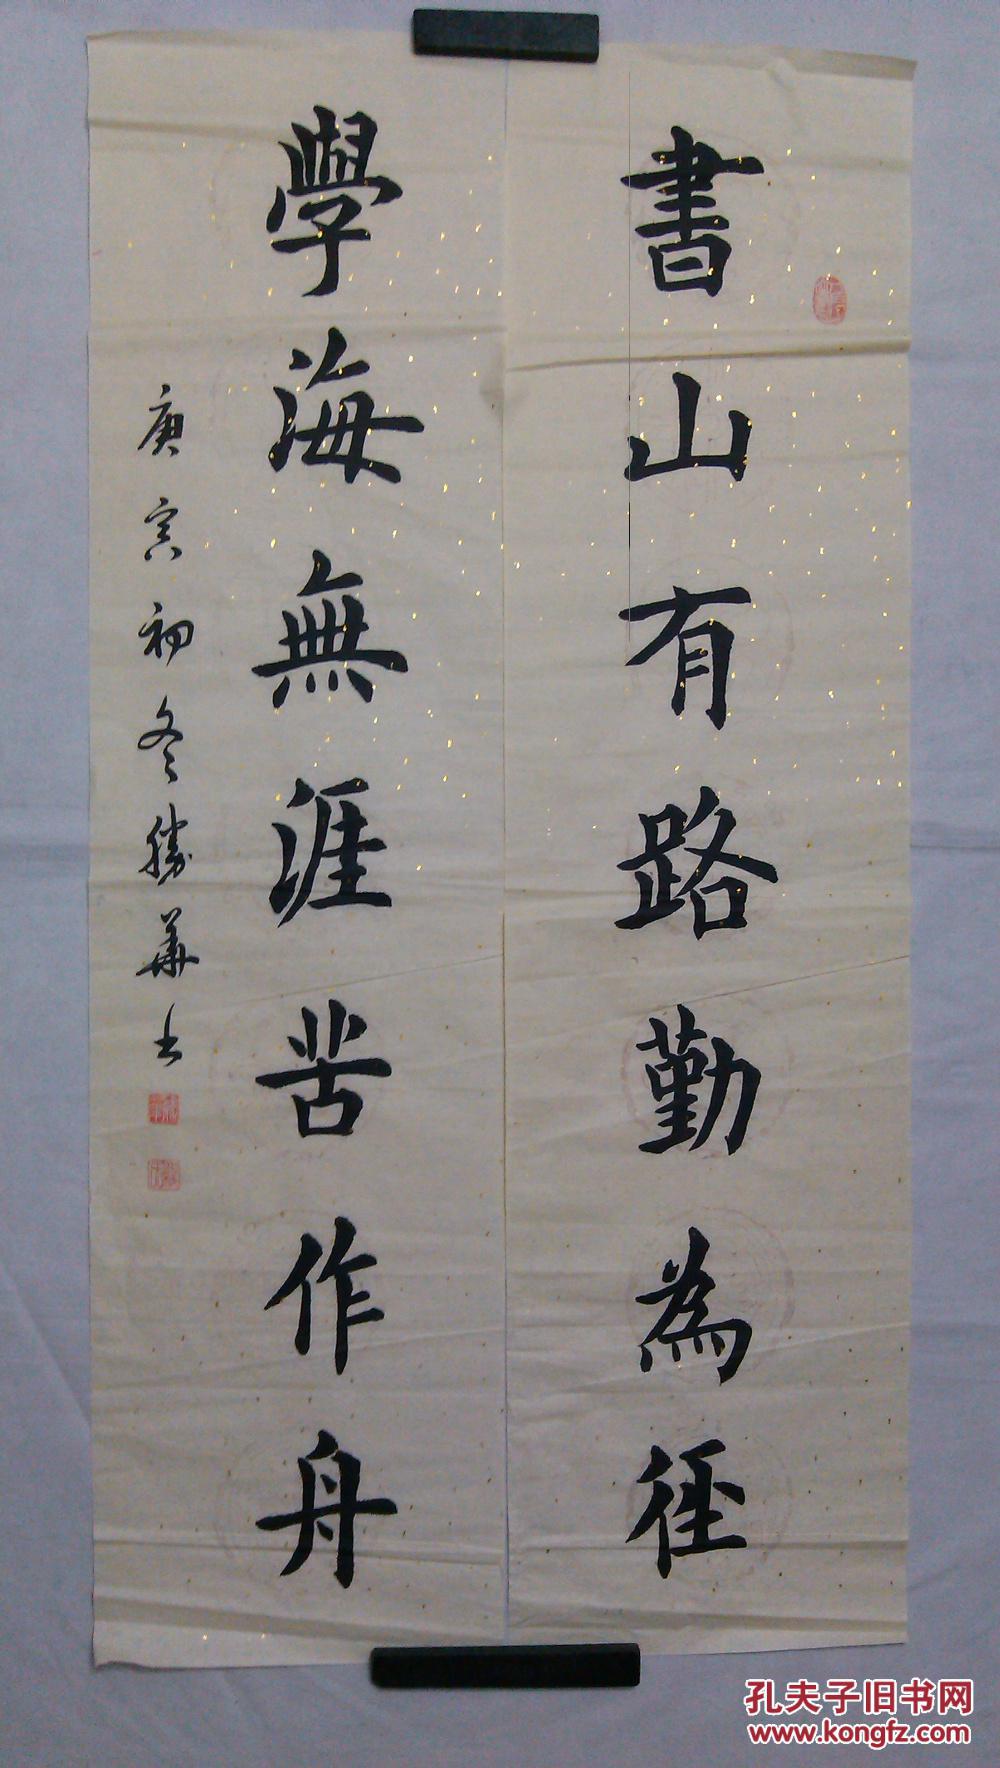 書山有路勤為徑
學海無涯苦作舟
庚寅初冬勝華书
孔夫子旧书网
www.kongfz.com